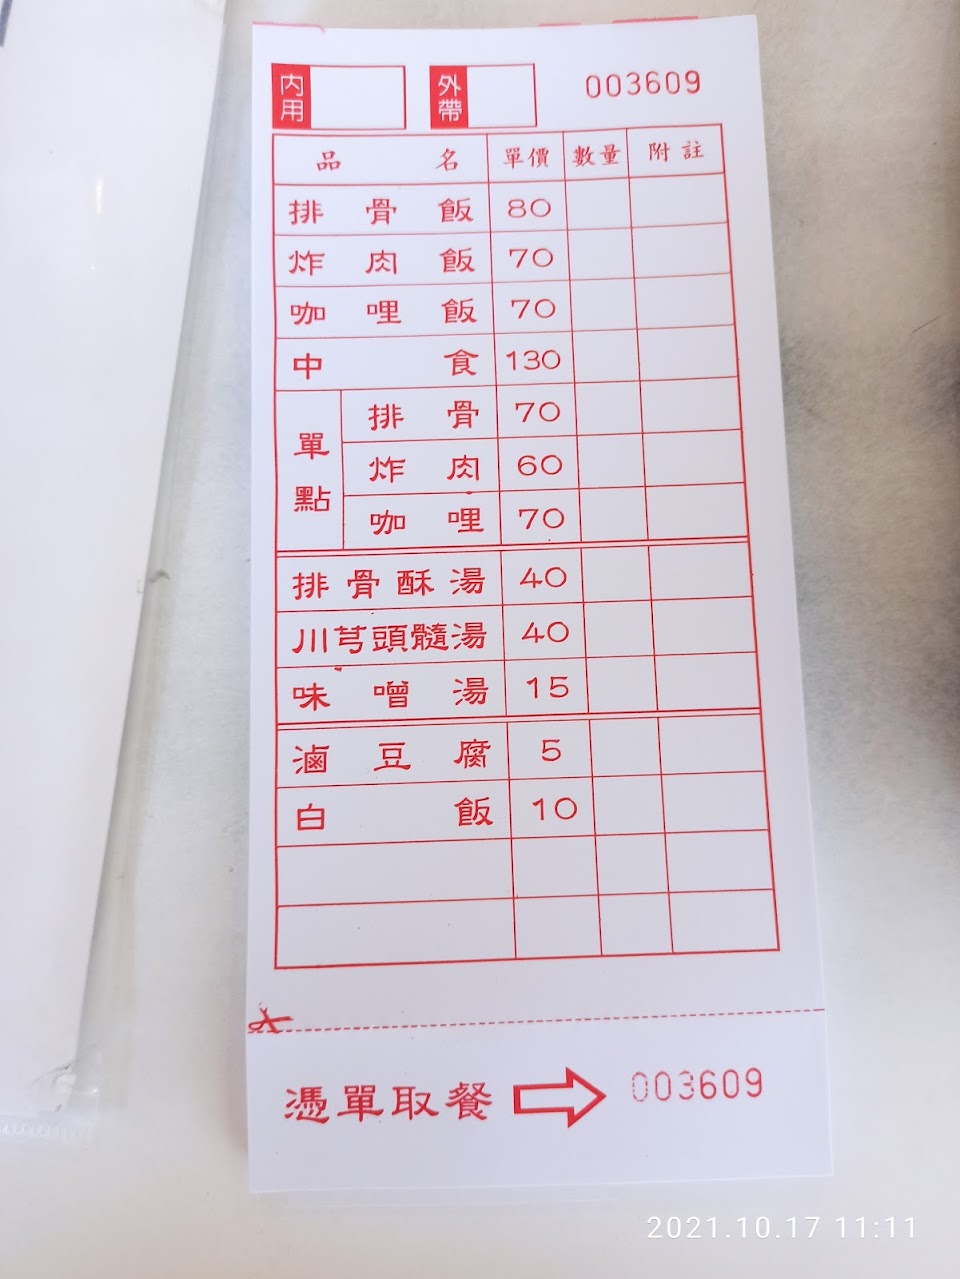 內用 外帶 003609
品名 單價 數量 附註
排骨飯 80
炸肉飯 70
咖哩飯 70
中食 130
單點
排骨 70
炸肉 60
咖哩 70
排骨酥湯 40
川芎頭髓湯 40
味噌湯 15
滷豆腐 5
白飯 10
憑單取餐 003609
2021.10.17 11:11